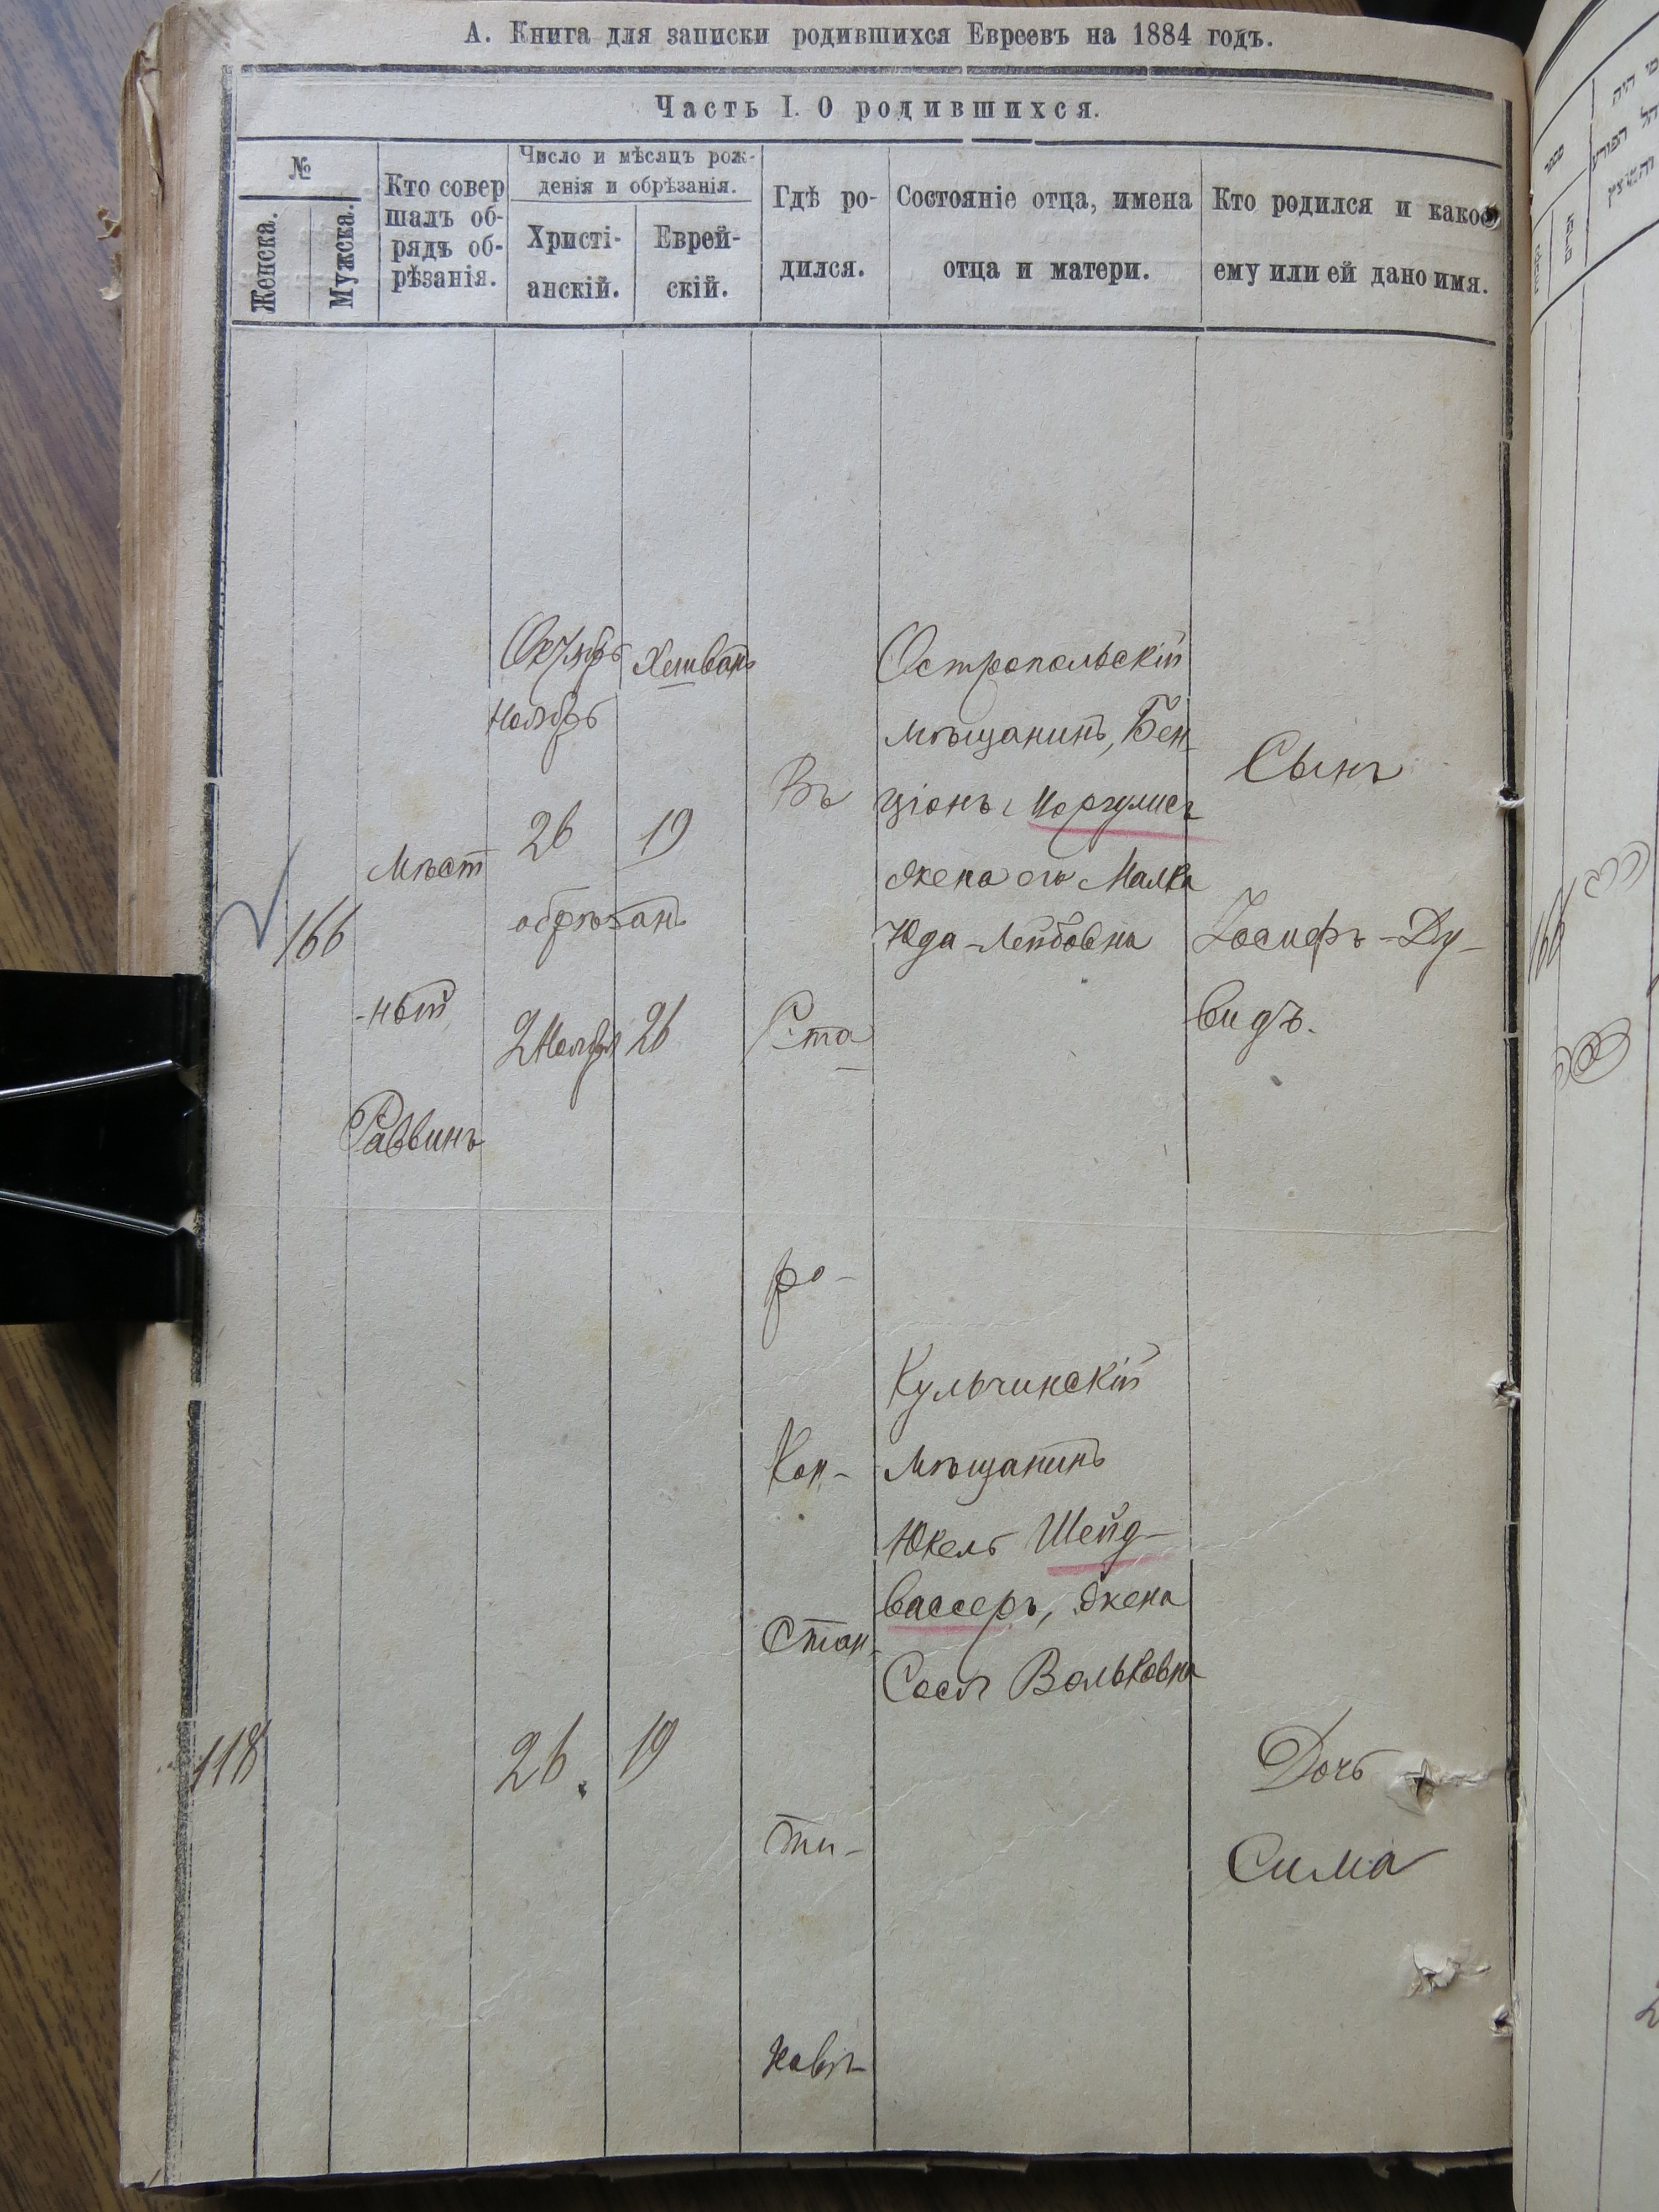 А. Книга для записки родившихся Евреевъ на 1884 годъ.
Часть I. О родившихся.
№
Женска.
Мужска.
Кто совер
шалъ об-
рядъ об-
рѣзанія.
Число и мѣсяцъ рож-
денія и обрѣзанія.
Христі-
анскій.
Еврей-
скій.
Гдѣ ро-
дился.
Состояніе отца, имена
отца и матери.
Кто родился и какое
ему или ей дано имя.
166
Мѣст
-ный
Раввинъ
Октябрь
Ноябрь
26
обрѣзанъ
2 Ноября
Хешванъ
19
26
Въ
Ста
ро-
Кон-
стан-
ти-
новѣ
Остропольскій
мѣщанинъ, Бен
ціонъ Моргулисъ
жена его Малка
Юда-Лейбовна
Сынъ
Іосифъ-Ду-
видъ.
118
26.
19
Кульчинскій
мѣщанинъ
Юкель Шейд-
вассеръ, жена
Сося Вольковна
Дочь
Сима
166